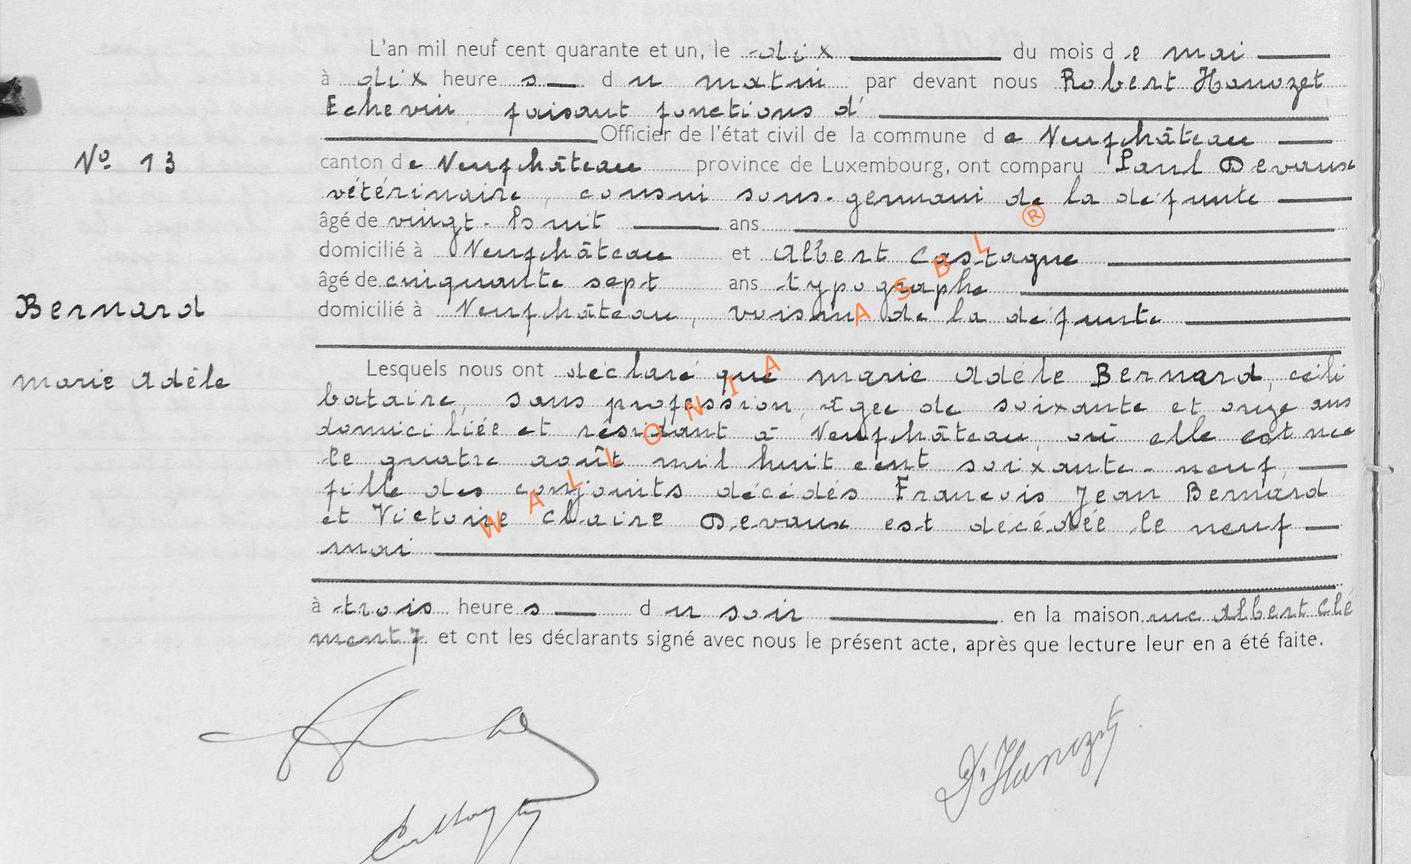 L'an mil neuf cent quarante et un, le dix du mois de mai
à dix heures du matin par devant nous Robert Hanozet
Echevin, faisant fonctions d'
Officier de l'état civil de la commune de Neufchâteau
N° 13
canton de Neufchâteau province de Luxembourg, ont comparu Paul Devaux
vétérinaire, cousin sous-germain de la défunte
âgé de vingt-huit ans
domicilié à Neufchâteau et Albert Castagne
âgé de cinquante sept ans typographe
domicilié à Neufchâteau, voisin de la défunte
Bernard
Marie Adèle
Lesquels nous ont déclaré que Marie Adèle Bernard, céli
bataire, sans profession, âgée de soixante et onze ans
domiciliée et résidant à Neufchâteau, où elle est née
le quatre août mil huit cent soixante-neuf,
fille des conjoints décédés François Jean Bernard
et Victoire Claire Devaux est décédée le neuf
mai
à trois heures du soir en la maison rue Albert Clé
ment 7 et ont les déclarants signé avec nous le présent acte, après que lecture leur en a été faite.
WALLONIA ASBL ®
Castagne
Dr Hanozet